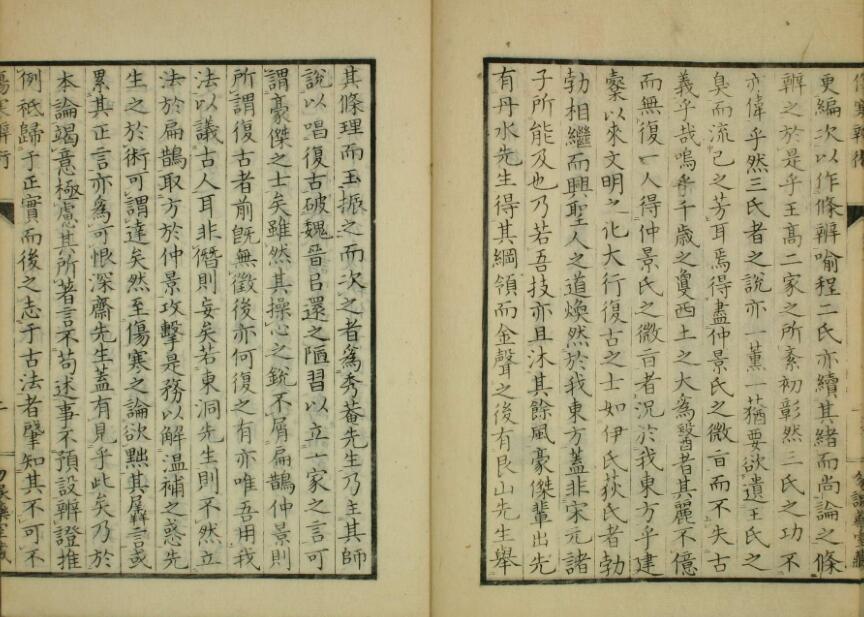 更編次以作條辨喻程二氏亦續其緒而尚論之條
辨之於是乎王高二家之所紊初彰然三氏之功不
亦偉乎然三氏者之說亦一薰一蕕要欲遺王氏之
臭而流己之芳耳焉得盡仲景氏之微旨而不失古
義乎哉嗚乎千歲之夐西土之大為醫者其麗不億
而無復一人得仲景氏之微旨者況於我東方乎建
櫜以來文明之化大行復古之士如伊氏荻氏者勃
勃相繼而興聖人之道煥然於我東方蓋非宋元諸
子所能及也乃若吾技亦且沐其餘風豪傑輩出先
有丹水先生得其綱領而金聲之後有艮山先生舉
其條理而玉振之而次之者為秀菴先生乃主其師
說以唱復古破魏晉呂還之陋習以立一家之言可
謂豪傑之士矣雖然其操心之銳不屑扁鵲仲景則
所謂復古者前既無徵後亦何復之有亦唯吾用我
法以議古人耳非僭則妄矣若東洞先生則不然立
法於扁鵲取方於仲景攻擊是務以解溫補之惑先
生之於術可謂達矣然至傷寒之論欲黜其孱言或
累其正言亦為可恨深齋先生蓋有見乎此矣乃於
本論竭意極慮其所著言不苟述事不預設辨證推
例祗歸于正實而後之志于古法者肇知其不可不
傷寒辨術